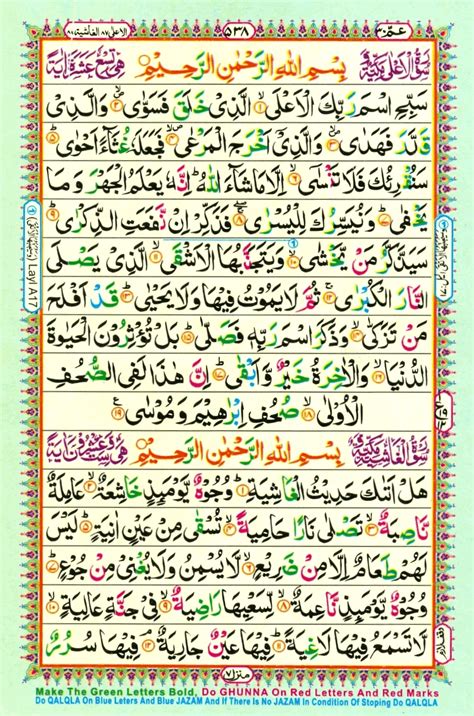 عمّ ٣٠ ٥٣٨ الاعلى ٨٧ الغاشية ٨٨
سُوْرَةُ الْاَعْلٰى مَكِّيَّةٌ بِسْمِ اللّٰهِ الرَّحْمٰنِ الرَّحِيْمِ هِيَ تِسْعَ عَشَرَةَ اٰيَةً
سَبِّحِ اسْمَ رَبِّكَ الْاَعْلَى ۙ﴿۱﴾ الَّذِيْ خَلَقَ فَسَوّٰى ۙ﴿۲﴾ وَالَّذِيْ
قَدَّرَ فَهَدٰى ۙ﴿۳﴾ وَالَّذِيْٓ اَخْرَجَ الْمَرْعٰى ۙ﴿۴﴾ فَجَعَلَهٗ غُثَآءً اَحْوٰى ۙ﴿۵﴾
سَنُقْرِئُكَ فَلَا تَنْسٰٓى ۙ﴿۶﴾ اِلَّا مَا شَآءَ اللّٰهُ ؕ اِنَّهٗ يَعْلَمُ الْجَهْرَ وَمَا
يَخْفٰى ؕ﴿۷﴾ وَنُيَسِّرُكَ لِلْيُسْرٰى ۚۖ﴿۸﴾ فَذَكِّرْ اِنْ نَّفَعَتِ الذِّكْرٰى ؕ﴿۹﴾
سَيَذَّكَّرُ مَنْ يَّخْشٰى ۙ﴿۱۰﴾ وَيَتَجَنَّبُهَا الْاَشْقَى ۙ﴿۱۱﴾ الَّذِيْ يَصْلَى
النَّارَ الْكُبْرٰى ۚ﴿۱۲﴾ ثُمَّ لَا يَمُوْتُ فِيْهَا وَلَا يَحْيٰى ؕ﴿۱۳﴾ قَدْ اَفْلَحَ
مَنْ تَزَكّٰى ۙ﴿۱۴﴾ وَذَكَرَ اسْمَ رَبِّهٖ فَصَلّٰى ؕ﴿۱۵﴾ بَلْ تُؤْثِرُوْنَ الْحَيٰوةَ
الدُّنْيَا ۖ﴿۱۶﴾ وَالْاٰخِرَةُ خَيْرٌ وَّاَبْقٰى ؕ﴿۱۷﴾ اِنَّ هٰذَا لَفِي الصُّحُفِ
الْاُوْلٰى ۙ﴿۱۸﴾ صُحُفِ اِبْرٰهِيْمَ وَمُوْسٰى ﴿۱۹﴾
سُوْرَةُ الْغَاشِيَةِ مَكِّيَّةٌ بِسْمِ اللّٰهِ الرَّحْمٰنِ الرَّحِيْمِ هِيَ سِتٌّ وَّعِشْرُوْنَ اٰيَةً
هَلْ اَتٰىكَ حَدِيْثُ الْغَاشِيَةِ ؕ﴿۱﴾ وُجُوْهٌ يَّوْمَئِذٍ خَاشِعَةٌ ۙ﴿۲﴾ عَامِلَةٌ
نَّاصِبَةٌ ۙ﴿۳﴾ تَصْلٰى نَارًا حَامِيَةً ۙ﴿۴﴾ تُسْقٰى مِنْ عَيْنٍ اٰنِيَةٍ ؕ﴿۵﴾ لَيْسَ
لَهُمْ طَعَامٌ اِلَّا مِنْ ضَرِيْعٍ ۙ﴿۶﴾ لَّا يُسْمِنُ وَلَا يُغْنِيْ مِنْ جُوْعٍ ؕ﴿۷﴾
وُجُوْهٌ يَّوْمَئِذٍ نَّاعِمَةٌ ۙ﴿۸﴾ لِّسَعْيِهَا رَاضِيَةٌ ۙ﴿۹﴾ فِيْ جَنَّةٍ عَالِيَةٍ ۙ﴿۱۰﴾
لَّا تَسْمَعُ فِيْهَا لَاغِيَةً ؕ﴿۱۱﴾ فِيْهَا عَيْنٌ جَارِيَةٌ ۘ﴿۱۲﴾ فِيْهَا سُرُرٌ
منزل ٧
Layl A17
Make The Green Letters Bold, Do GHUNNA On Red Letters And Red Marks
Do QALQLA On Blue Leters And Blue JAZAM And If There Is No JAZAM In Condition Of Stoping Do QALQLA